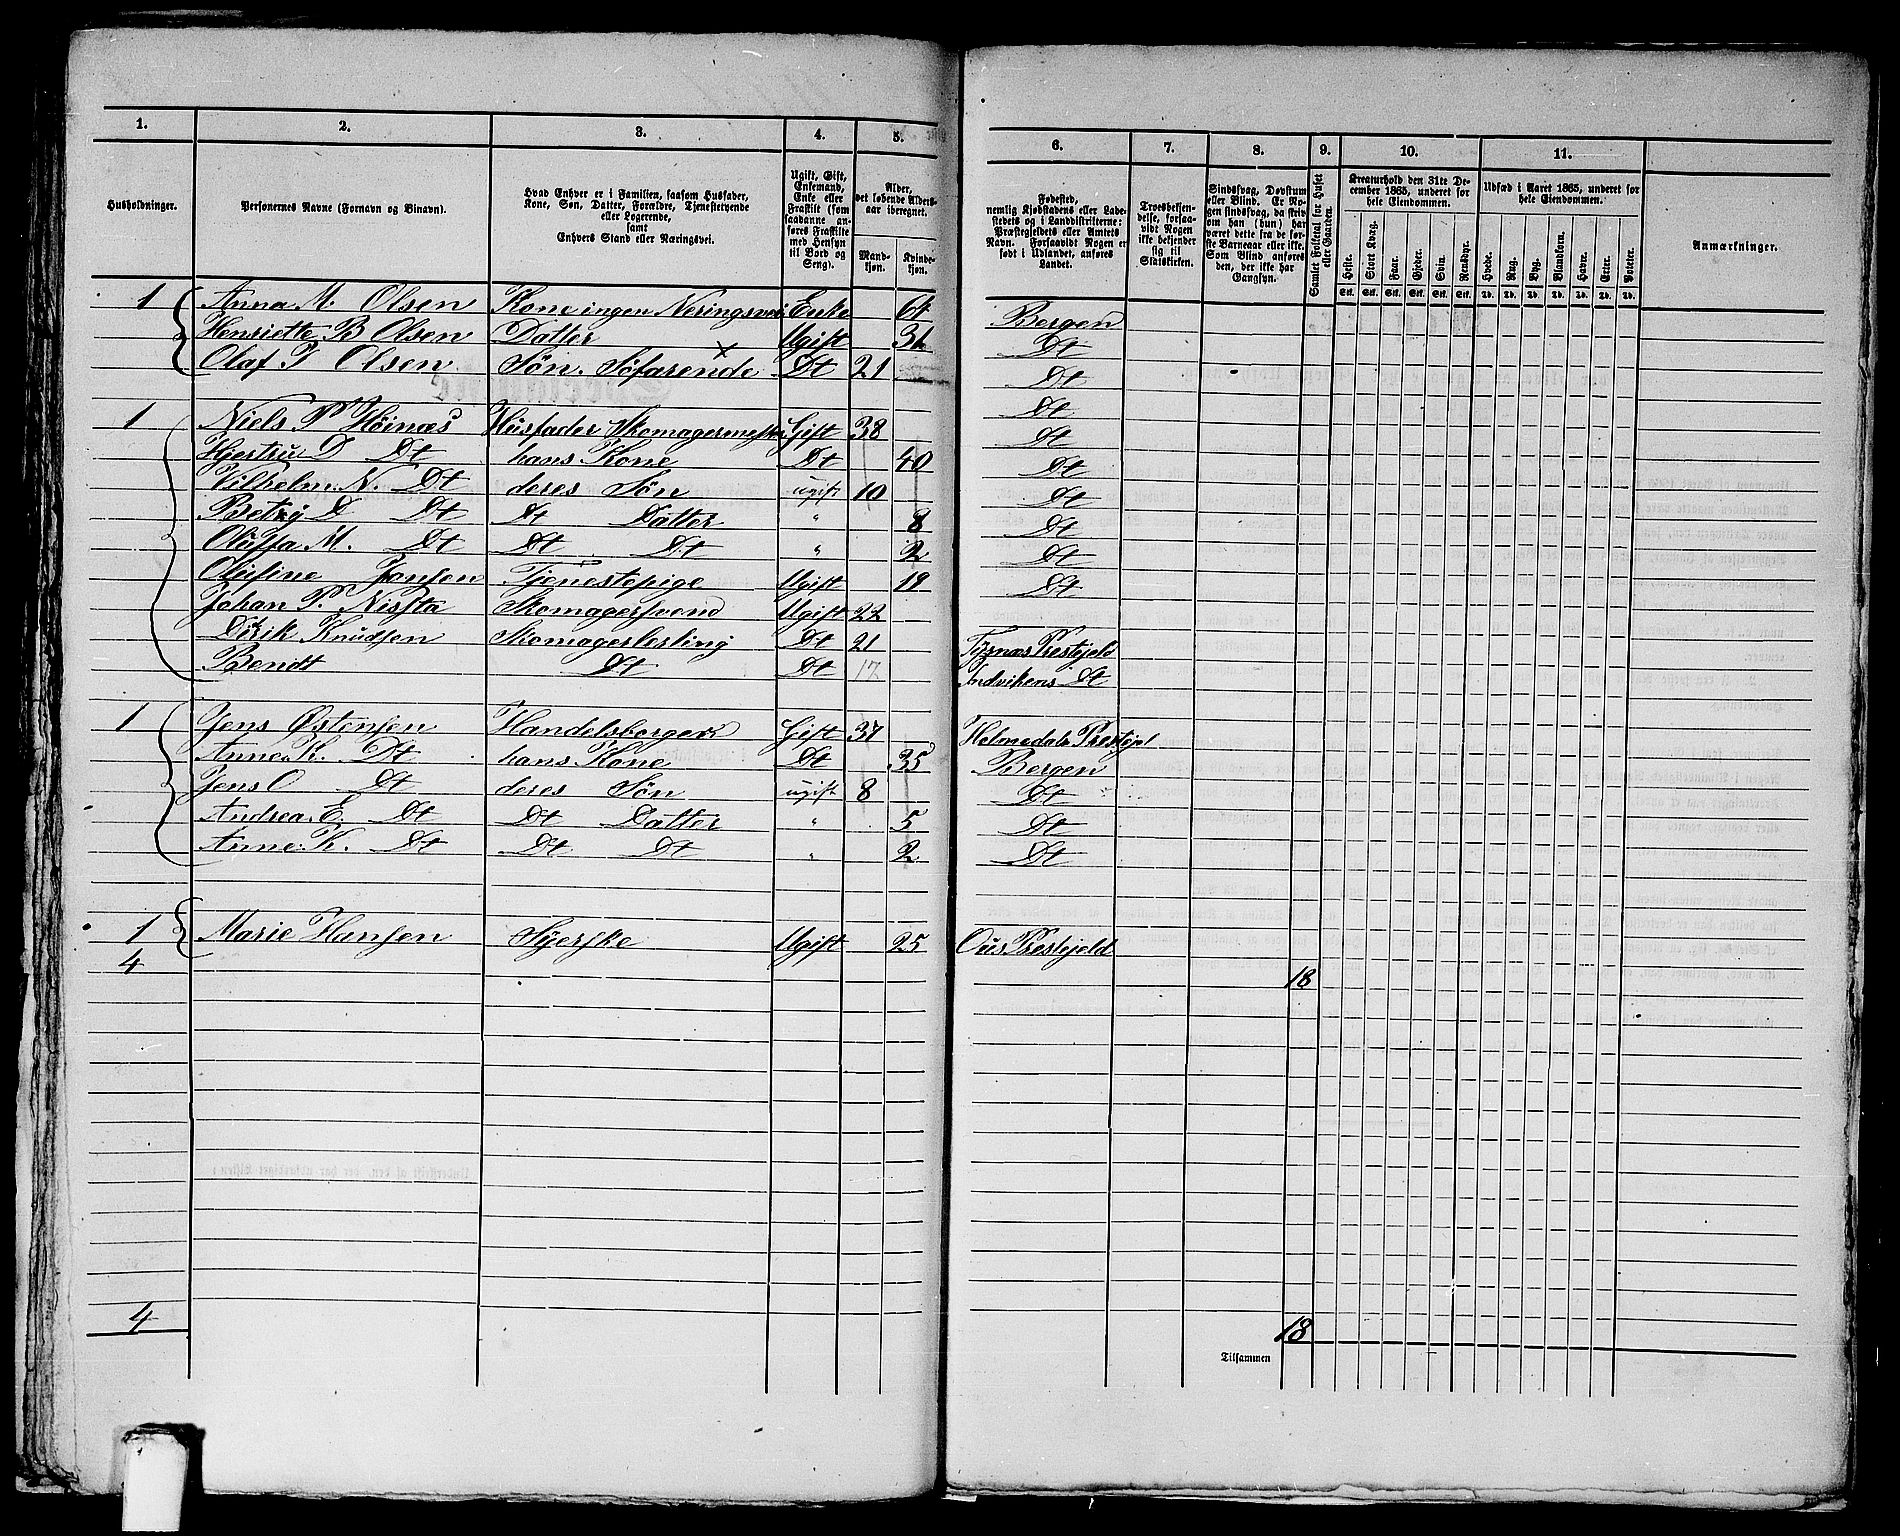 1. 2. 3. 4. 5. 6. 7. 8. 9. 10. 11.
Husholdninger.
Personernes Navne (Fornavn og Binavn).
Hvad Enhver er i Familien, saasom Husfader,
Kone, Søn, Datter, Forældre, Tjenestetyende
eller Logerende,
samt
Enhvers Stand eller Næringsvei.
Ugift, Gift,
Enkemand,
Enke eller
Fraskilt (som
saadanne an-
føres Fraskilte
med Hensyn
til Bord og
Seng).
Alder,
det løbende Alders-
aar iberegnet.
Mand-
kjøn.
Kvinde-
kjøn.
Fødested,
nemlig Kjøbstadens eller Lade-
stedets og i Landdistrikterne:
Præstegjeldets eller Amtets
Navn. Forsaavidt Nogen er
født i Udlandet, anføres
Landet.
Troesbekjen-
delse, forsaa-
vidt Nogen
ikke bekjender
sig til
Statskirken.
Sindssvag, Døvstum
eller Blind. Er No-
gen sindssvag, da skriv
om han (hun) har
været dette fra de før-
ste Barneaar eller ikke.
Som Blind anføres
den, der ikke har
Gangsyn.
Samlet Folketal for Huset
eller Gaarden.
Kreaturhold den 31te De-
cember 1865, anføret for
hele Eiendommen.
Heste. Stort Kvæg. Faar. Gjeder. Svin. Rensdyr.
Stk. Stk. Stk. Stk. Stk. Stk.
Udsæd i Aaret 1865, anføret for
hele Eiendommen.
Hvede. Rug. Byg. Blandkorn. Havre. Erter. Poteter.
Td. Td. Td. Td. Td. Td. Td.
Anmærkninger.
1 Anna M. Olsen Kone ingen Neringsvei Enke 64 Bergen
Henriette B Olsen Datter Ugift Dt
Olaf Olsen Søn. Søfarende Dt 21 Dt
1 Niels P Høinæs Husfader Skomagermester Gift 38 Dt
D Dt hans Kone Dt 40 Dt
Vilhelm. N. Dt deres Søn ugift 10 Dt
D Dt Dt Datter " 8 Dt
M. Dt Dt Dt " 2 Dt
Olufine Jansen Tjenestepige Ugift 19 Dt
Johan P. Skomagersvend Ugift 22 Dt
Knudsen Skomagerlerling Dt 21 Tysnæs Prestejeld
Bendt Dt Dt 17 Indvikens Dt
1 Jens Østensen Handelsborger Gift 37 Prestejel
Anne. K. Dt hans Kone Dt 35 Bergen
Jens O Dt deres Søn ugift 8 Dt
Andrea. E. Dt Dt Datter " 5 Dt
Anne. K. Dt Dt Dt " 2 Dt
1 Marie Hansen Syerske Ugift 25 Ous Prestejeld
4 18
4 18
Tilsammen